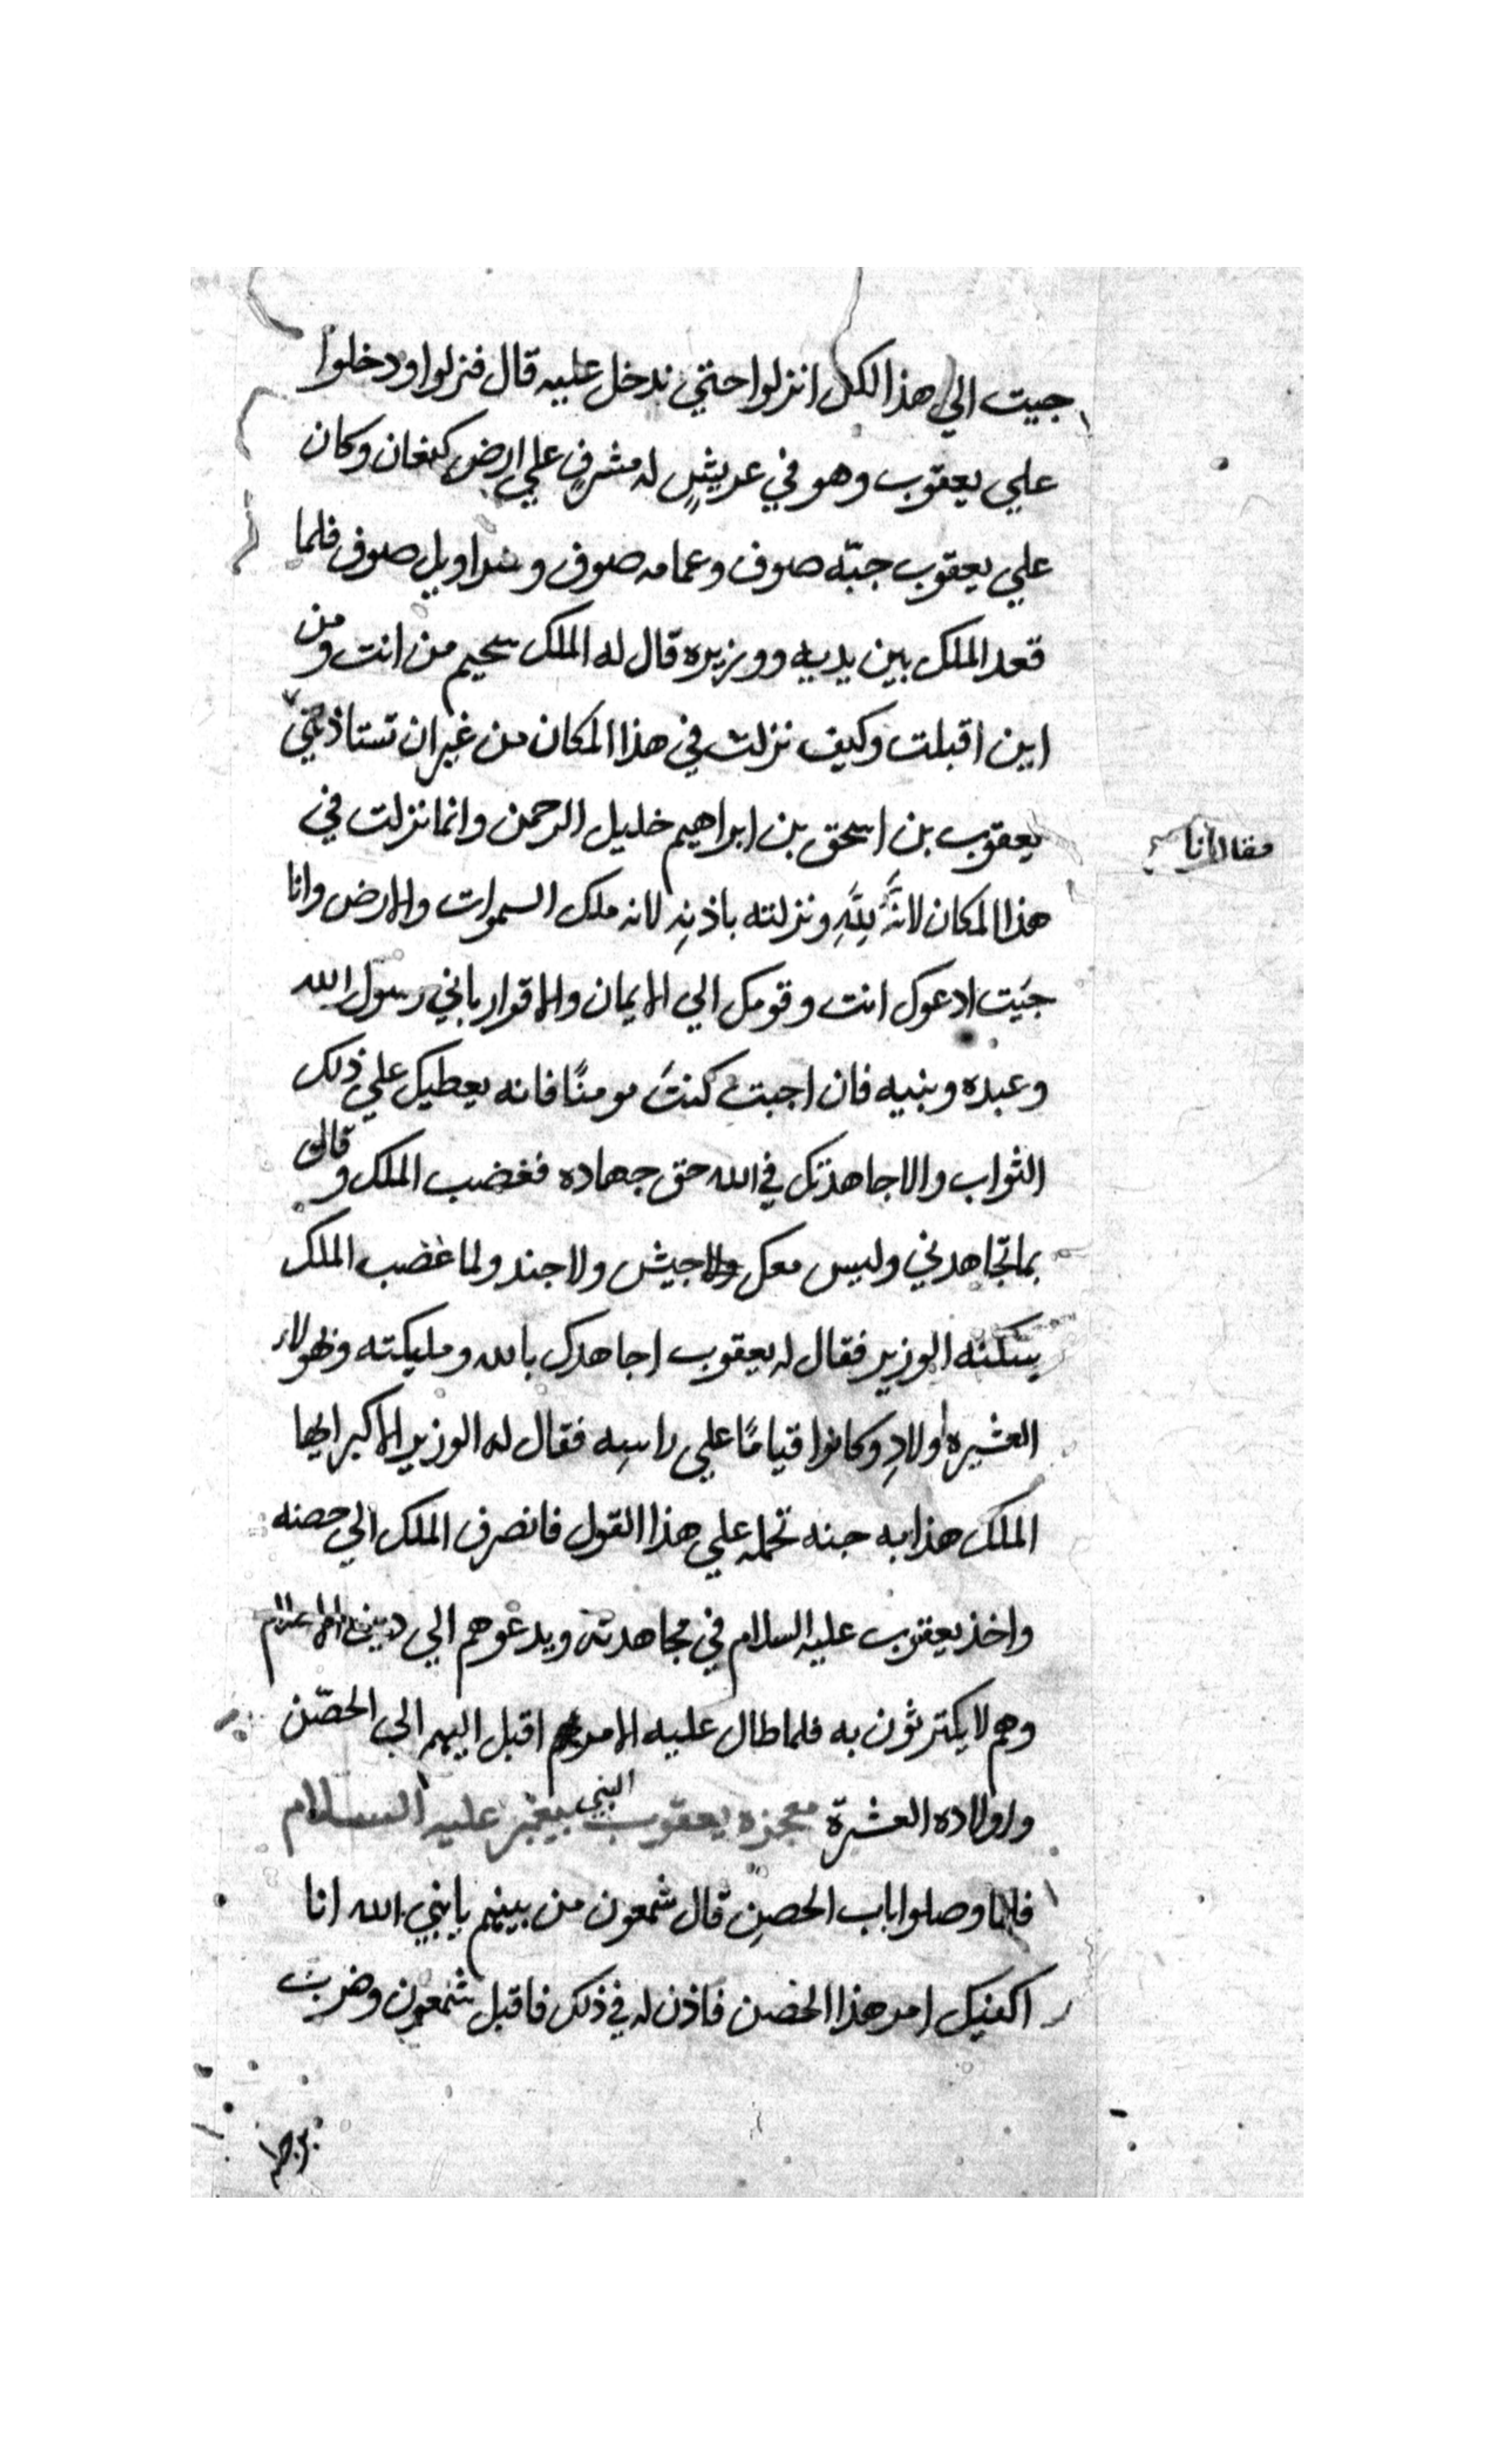 جيت الي هذا الكل انزلوا حتي ندخل عليه قال فنزلوا ودخلوا
علي يعقوب وهو في عريشٍ له مشرفٍ علي ارض كنعان وكان
علي يعقوب جبّه صوف وعمامه صوف وسراويل صوف فلما
قعد الملك بين يديه ووزيره قال له الملك سحيم من انت ومن
اين اقبلت وكيف نزلت في هذا المكان من غير ان تستاذني
فقال انا
يعقوب بن اسحق بن ابراهيم خليل الرحمن وانما نزلت في
هذا المكان لانَّهُ لِلَّهِ ونزلته باذنِه لانه ملك السموات والارض وانا
جيت ادعوك انت وقومك الي الايمان والاقرار باني رسول الله
وعبده ونبيه فان اجبت كنتَ مومنًا فانه يعطيك علي ذلك
الثواب والا جاهدتك في الله حق جهاده فغضب الملك وقال
بما تجاهدني وليس معك ولا جيش ولا جند ولما غضب الملك
يسكنه الوزير فقال له يعقوب اجاهدك بالله ومليكته وبهولاء
العشيره اولادِ وكانوا قيامًا علي راسِه فقال له الوزير الاكبر ايها
الملك هذا به جنه تحمله علي هذا القول فانصرف الملك الي حصنه
واخذ يعقوب عليه السلام في مجاهدته ويدعوهم الي دين الاسلام
وهم لا يكترثون به فلما طال عليه الامر اقبل اليهم الي الحصّن
واولاده العشرة معجزه يعقوب النبي بيغمبر عليه السلام
فلما وصلوا باب الحصنِ قال شمعون من بينهم يا نبي الله انا
اكفيك امر هذا الحصن فاذن له في ذلك فاقبل شمعون وضرب
برجله